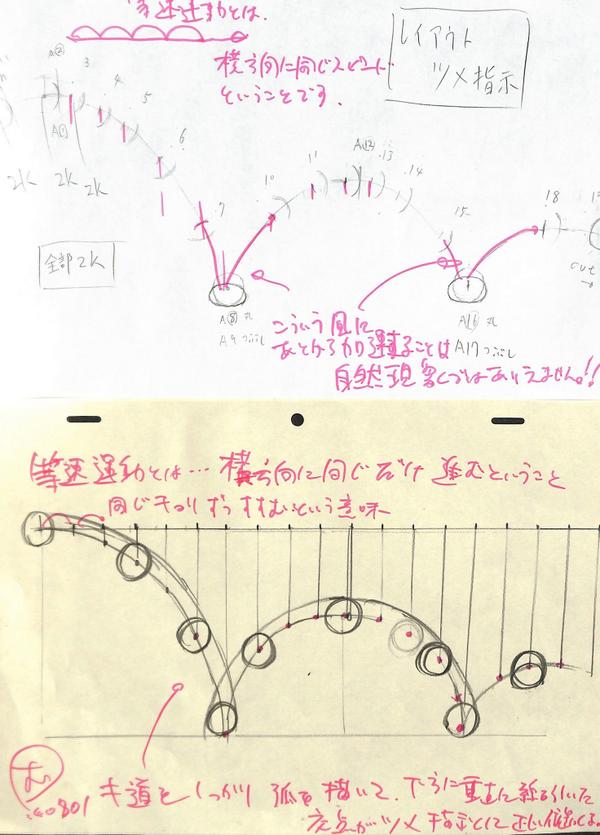 等速運動とは、
横方向に同じスピード
ということです。
レイアウト
ツメ指示
A②
3
4
5
6
7
A①
2K 2K 2K
全部2K
10
11
A⑫
13
14
15
18
cut
A⑧ 丸
A9 つぶし
A⑯ 丸
A17 つぶし
こういう風に
あとから加速することは
自然現象ではありえません!!
等速運動とは… 横方向に同じだけ進むということ
同じキョリずつすすむという意味
キ道をしっかり弧を描いて、下方に垂直に線を引いた
交点がツメ指示として正しい
む
140801